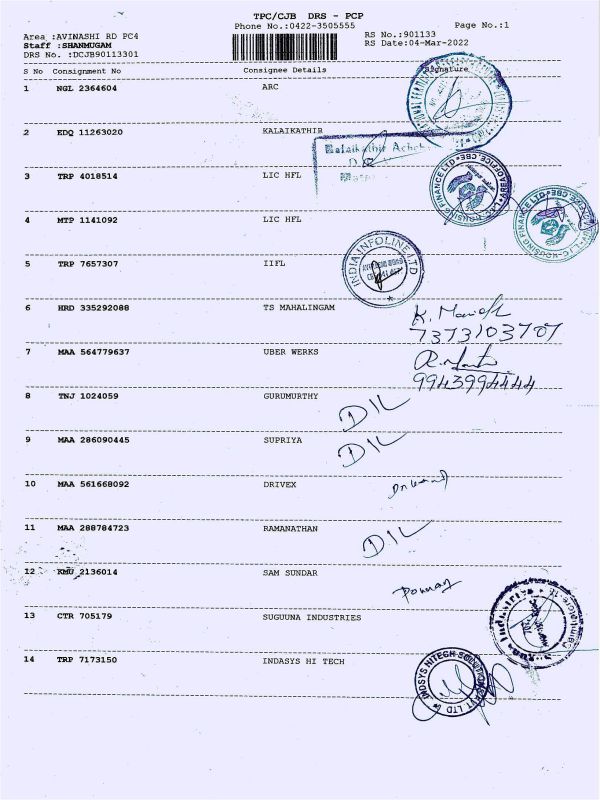 TPC/CJB DRS - PCP
Phone No.:0422-3505555 Page No.:1
Area :AVINASHI RD PC4 RS No.:901133
Staff :SHANMUGAM RS Date:04-Mar-2022
DRS No. :DCJB90113301
S No Consignment No Consignee Details Signature
1 NGL 2364604 ARC
2 EDQ 11263020 KALAIKATHIR
Kalaikathir
3 TRP 4018514 LIC HFL
LIC HOUSING FINANCE LTD
4 MTP 1141092 LIC HFL
5 TRP 7657307 IIFL
INDIA INFOLINE LTD
6 HRD 335292088 TS MAHALINGAM
7373103707
7 MAA 564779637 UBER WERKS
9943994444
8 TNJ 1024059 GURUMURTHY DIL
9 MAA 286090445 SUPRIYA DIL
10 MAA 561668092 DRIVEX
11 MAA 288784723 RAMANATHAN DIL
12 KMU 2136014 SAM SUNDAR
13 CTR 705179 SUGUUNA INDUSTRIES
14 TRP 7173150 INDASYS HI TECH